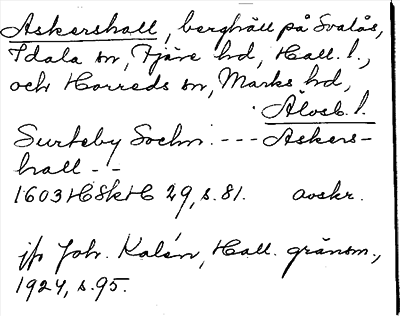 Askershall, berghäll på Svalås,
Idala sn, Fjäre hd, Hall. l.,
och Horreds sn, Marks hd,
Älvsb. l.
Surteby Sochn. --- Askers-
hall --
1603 HSkH 29, s. 81. avskr.
jfr Joh. Kalén, Hall. gränsm.,
1924, s. 95.